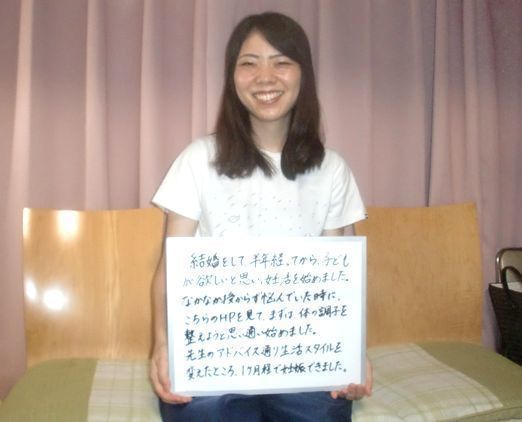 結婚をして半年経ってから、子ども
が欲しいと思い、妊活を始めました。
なかなか授からず悩んでいた時に、
こちらのHPを見て、まずは体の調子を
整えようと思い通い始めました。
先生のアドバイス通り生活スタイルを
変えたところ、1ヶ月程で妊娠できました。